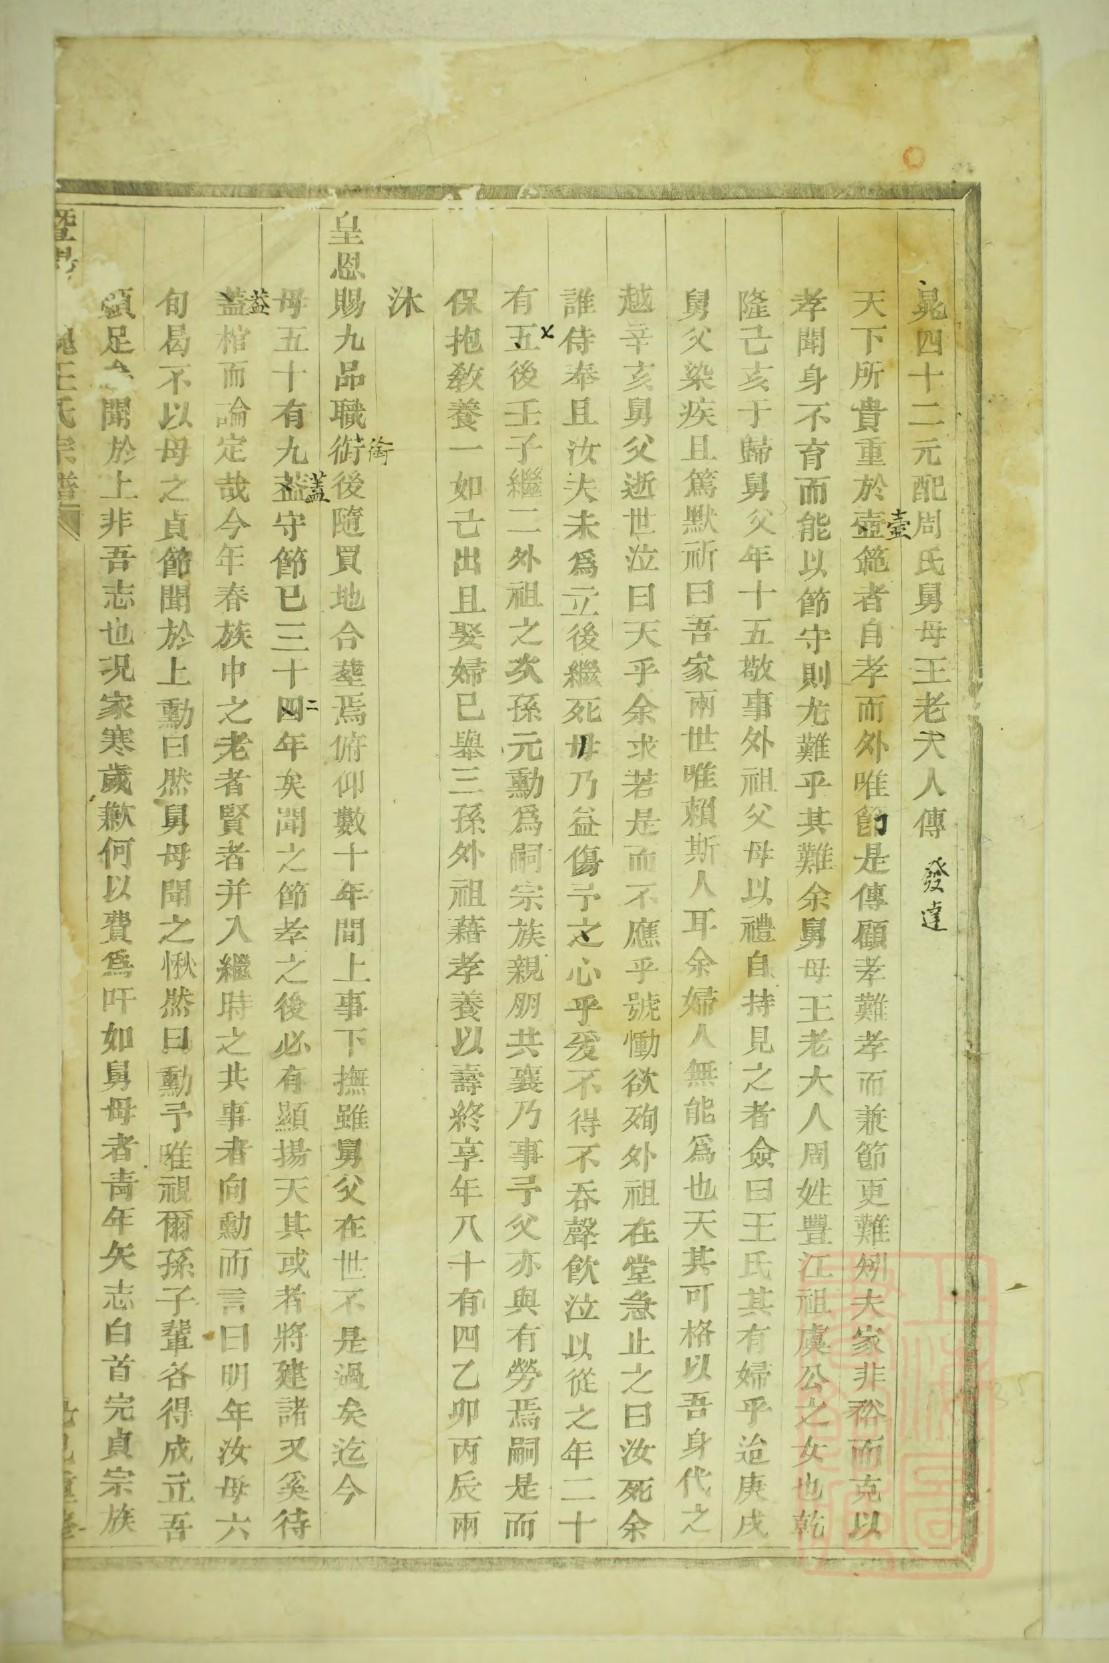 晁四十二元配周氏舅母王老大人傳 發達
天下所貴重於壺範者自孝而外唯節是傳顧孝難孝而兼節更難矧夫家非裕而克以
壼
孝聞身不育而能以節守則尤難乎其難余舅母王老大人周姓豐江祖虞公之女也乾
隆己亥于歸舅父年十五敬事外祖父母以禮自持見之者僉曰王氏其有婦乎迨庚戌
舅父染疾且篤默祈曰吾家兩世唯賴斯人耳余婦人無能爲也天其可格以吾身代之
越辛亥舅父逝世泣曰天乎余求若是而不應乎號慟欲殉外祖在堂急止之曰汝死余
誰侍奉且汝夫未爲立後繼死毋乃益傷予之心乎爰不得不吞聲飲泣以從之年二十
有五後壬子繼二外祖之次孫元勳爲嗣宗族親朋共襄乃事予父亦與有勞焉嗣是而
保抱敎養一如己出且娶婦已舉三孫外祖藉孝養以壽終享年八十有四乙卯丙辰兩
沐
皇恩賜九品職銜後隨買地合葬焉俯仰數十年間上事下撫雖舅父在世不是過矣迄今
銜
母五十有九盖守節已三十四年矣聞之節孝之後必有顯揚天其或者將建諸又奚待
蓋
二
蓋棺而論定哉今年春族中之老者賢者并入繼時之共事者向勳而言曰明年汝母六
盖
旬曷不以母之貞節聞於上勳曰然舅母聞之愀然曰勳予唯視爾孫子輩各得成立吾
願足聞於上非吾志也况家寒歲歉何以費爲吁如舅母者靑年矢志白首完貞宗族
暨陽 王氏宗譜